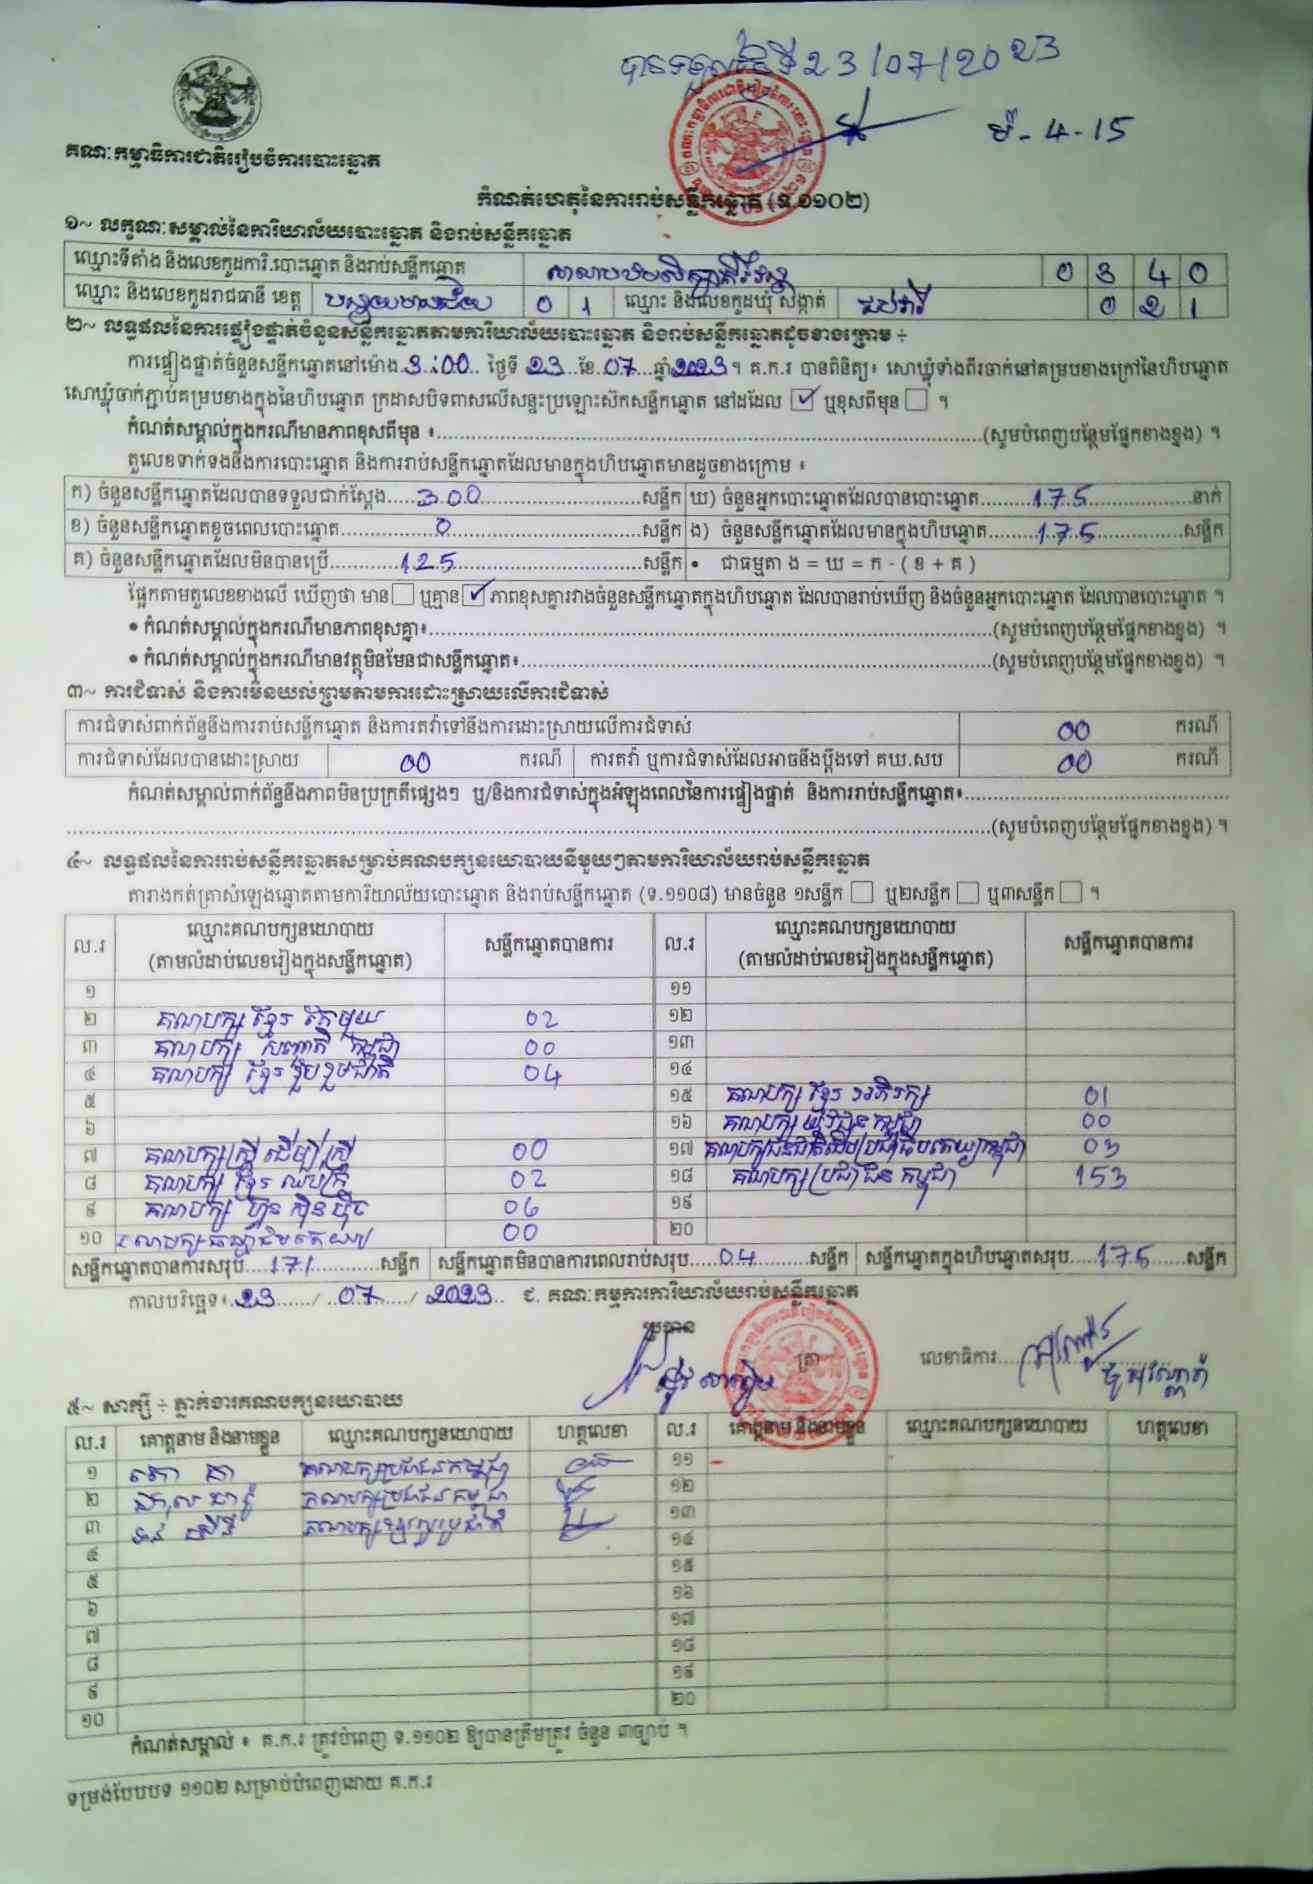 បានទទួលថ្ងៃទី 23/07/2023
ម៉ - 4 - 15
គណៈកម្មាធិការជាតិរៀបចំការបោះឆ្នោត
កំណត់ហេតុនៃការរាប់សន្លឹកឆ្នោត (ទ.១១០២)
១~ លក្ខណៈសម្គាល់នៃការិយាល័យបោះឆ្នោត និងរាប់សន្លឹកឆ្នោត
ឈ្មោះទីតាំង និងលេខកូដការិ.បោះឆ្នោត និងរាប់សន្លឹកឆ្នោត 0 3 4 0
ឈ្មោះ និងលេខកូដរាជធានី ខេត្ត បន្ទាយមានជ័យ 0 1 ឈ្មោះ និងលេខកូដឃុំ សង្កាត់ 0 2 1
២~ លទ្ធផលនៃការផ្ទៀងផ្ទាត់ចំនួនសន្លឹកឆ្នោតតាមការិយាល័យបោះឆ្នោត និងរាប់សន្លឹកឆ្នោតដូចខាងក្រោម ÷
ការផ្ទៀងផ្ទាត់ចំនួនសន្លឹកឆ្នោតនៅម៉ោង.3.:00.. ថ្ងៃទី 23..ខែ.07...ឆ្នាំ2023។ គ.ក.រ បានពិនិត្យ៖ សោឃ្លុំទាំងពីរចាក់នៅគម្របខាងក្រៅនៃហិបឆ្នោត
សោឃ្លុំចាក់ភ្ជាប់គម្របខាងក្នុងនៃហិបឆ្នោត ក្រដាសបិទពាសលើសន្ទះប្រឡោះស៊កសន្លឹកឆ្នោត នៅដដែល ☑ ឬខុសពីមុន ☐ ។
កំណត់សម្គាល់ក្នុងករណីមានភាពខុសពីមុន ៖......(សូមបំពេញបន្ថែមផ្នែកខាងខ្នង) ។
តួលេខទាក់ទងនឹងការបោះឆ្នោត និងការរាប់សន្លឹកឆ្នោតដែលមានក្នុងហិបឆ្នោតមានដូចខាងក្រោម ៖
ក) ចំនួនសន្លឹកឆ្នោតដែលបានទទួលជាក់ស្តែង.....300......សន្លឹក ឃ) ចំនួនអ្នកបោះឆ្នោតដែលបានបោះឆ្នោត......175......នាក់
ខ) ចំនួនសន្លឹកឆ្នោតខូចពេលបោះឆ្នោត......0......សន្លឹក ង) ចំនួនសន្លឹកឆ្នោតដែលមានក្នុងហិបឆ្នោត......175......សន្លឹក
គ) ចំនួនសន្លឹកឆ្នោតដែលមិនបានប្រើ......125......សន្លឹក • ជាធម្មតា ង = ឃ = ក - ( ខ + គ )
ផ្អែកតាមតួលេខខាងលើ ឃើញថា មាន☐ ឬគ្មាន☑ភាពខុសគ្នារវាងចំនួនសន្លឹកឆ្នោតក្នុងហិបឆ្នោត ដែលបានរាប់ឃើញ និងចំនួនអ្នកបោះឆ្នោត ដែលបានបោះឆ្នោត ។
• កំណត់សម្គាល់ក្នុងករណីមានភាពខុសគ្នា៖......(សូមបំពេញបន្ថែមផ្នែកខាងខ្នង) ។
• កំណត់សម្គាល់ក្នុងករណីមានវត្ថុមិនមែនជាសន្លឹកឆ្នោត៖......(សូមបំពេញបន្ថែមផ្នែកខាងខ្នង) ។
៣~ ការជំទាស់ និងការមិនយល់ព្រមតាមការដោះស្រាយលើការជំទាស់
ការជំទាស់ពាក់ព័ន្ធនឹងការរាប់សន្លឹកឆ្នោត និងការតវ៉ាទៅនឹងការដោះស្រាយលើការជំទាស់ 00 ករណី
ការជំទាស់ដែលបានដោះស្រាយ 00 ករណី ការតវ៉ា ឬការជំទាស់ដែលអាចនឹងប្តឹងទៅ គឃ.សប 00 ករណី
កំណត់សម្គាល់ពាក់ព័ន្ធនឹងភាពមិនប្រក្រតីផ្សេងៗ ឬ/និងការជំទាស់ក្នុងអំឡុងពេលនៃការផ្ទៀងផ្ទាត់ និងការរាប់សន្លឹកឆ្នោត៖......
......(សូមបំពេញបន្ថែមផ្នែកខាងខ្នង) ។
៤~ លទ្ធផលនៃការរាប់សន្លឹកឆ្នោតសម្រាប់គណបក្សនយោបាយនីមួយៗតាមការិយាល័យរាប់សន្លឹកឆ្នោត
តារាងកត់ត្រាសំឡេងឆ្នោតតាមការិយាល័យបោះឆ្នោត និងរាប់សន្លឹកឆ្នោត (ទ.១១០៨) មានចំនួន ១សន្លឹក ☐ ឬ២សន្លឹក ☐ ឬ៣សន្លឹក ☐ ។
ល.រ ឈ្មោះគណបក្សនយោបាយ សន្លឹកឆ្នោតបានការ ល.រ ឈ្មោះគណបក្សនយោបាយ សន្លឹកឆ្នោតបានការ
(តាមលំដាប់លេខរៀងក្នុងសន្លឹកឆ្នោត) (តាមលំដាប់លេខរៀងក្នុងសន្លឹកឆ្នោត)
១ ១១
២ គណបក្ស ខ្មែរ តែមួយ 02 ១២
៣ គណបក្ស សញ្ជាតិ កម្ពុជា 00 ១៣
៤ គណបក្ស ខ្មែរ រួបរួមជាតិ 04 ១៤
៥ ១៥ គណបក្ស ខ្មែរ អភិរក្ស 01
៦ ១៦ គណបក្ស យុវជន កម្ពុជា 00
៧ គណបក្ស ស្ត្រី ដើម្បី ស្ត្រី 00 ១៧ គណបក្សជនជាតិដើមប្រជាធិបតេយ្យកម្ពុជា 03
៨ គណបក្ស ខ្មែរ ឈប់ក្រ 02 ១៨ គណបក្ស ប្រជាជន កម្ពុជា 153
៩ គណបក្ស ហ៊្វុន ស៊ិន ប៉ិច 06 ១៩
១០ គណបក្ស ធម្មាធិបតេយ្យ 00 ២០
សន្លឹកឆ្នោតបានការសរុប....171......សន្លឹក សន្លឹកឆ្នោតមិនបានការពេលរាប់សរុប.....04......សន្លឹក សន្លឹកឆ្នោតក្នុងហិបឆ្នោតសរុប.....175......សន្លឹក
កាលបរិច្ឆេទ៖.23....../ ..07....../ 2023.. ជ. គណៈកម្មការការិយាល័យរាប់សន្លឹកឆ្នោត
ប្រធាន ត្រា លេខាធិការ......
៥~ សាក្សី ÷ ភ្នាក់ងារគណបក្សនយោបាយ
ល.រ គោត្តនាម និងនាមខ្លួន ឈ្មោះគណបក្សនយោបាយ ហត្ថលេខា ល.រ គោត្តនាម និងនាមខ្លួន ឈ្មោះគណបក្សនយោបាយ ហត្ថលេខា
១ គណបក្សប្រជាជនកម្ពុជា ១១
២ គណបក្សប្រជាជនកម្ពុជា ១២
៣ គណបក្សខ្មែររួបរួមជាតិ ១៣
៤ ១៤
៥ ១៥
៦ ១៦
៧ ១៧
៨ ១៨
៩ ១៩
១០ ២០
កំណត់សម្គាល់ ៖ គ.ក.រ ត្រូវបំពេញ ទ.១១០២ ឱ្យបានត្រឹមត្រូវ ចំនួន ៣ច្បាប់ ។
ទម្រង់បែបបទ ១១០២ សម្រាប់បំពេញដោយ គ.ក.រ